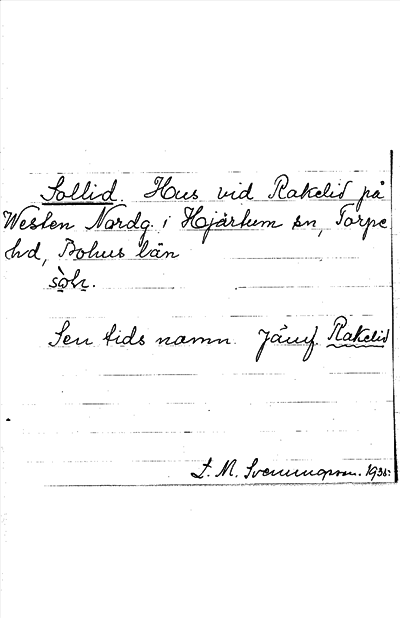 Sollid. Hus vid Rakelid på
Westen Nordg. i Hjärtum sn, Torpe
hd, Bohus län
Sen tids namn. Jämf. Rakelid
S. M. Svenungsson. 1936.